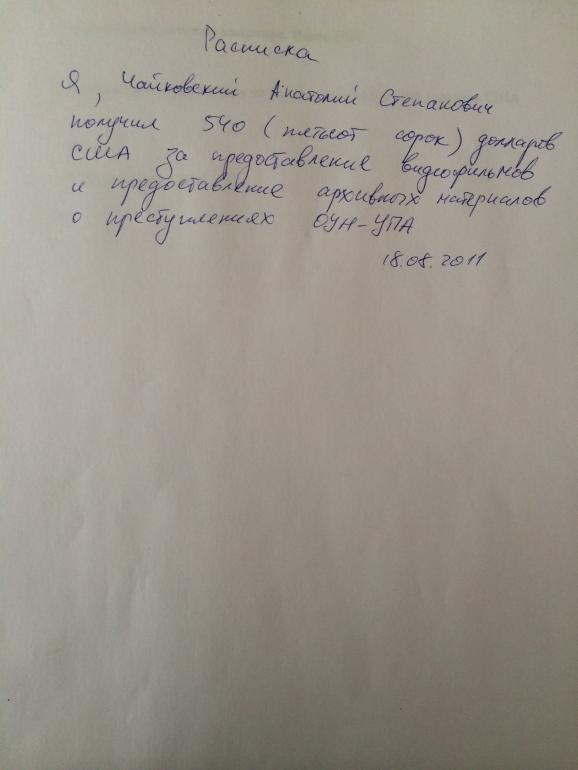 Расписка
Я, Чайковский Анатолий Степанович
получил 540 (пятьсот сорок) долларов
США за предоставление видеофильмов
и предоставление архивных материалов
о преступлениях ОУН-УПА
18.08.2011